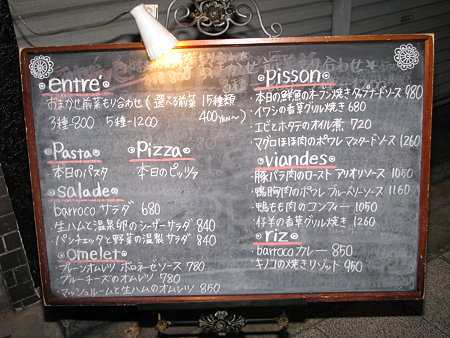 entré
おまかせ前菜もり合わせ(選べる前菜 15種類
3種-800 5種-1200 400YEN〜)
Pasta Pizza
本日のパスタ 本日のピッツァ
salade
barroco サラダ 680
・生ハムと温泉卵のシーザーサラダ 840
・パンチェッタと野菜の温製サラダ 840
omelet
プレーンオムレツ ボロネーゼソース 780
ブルーチーズのオムレツ 780
マッシュルームと生ハムのオムレツ 850
pisson
・本日の鮮魚のオーブン焼き タップナードソース 980
・イワシの香草グリル焼き 680
・エビとホタテのオイル煮 720
・マグロほほ肉のポワレ マスタードソース 1260
viandes
豚バラ肉のロースト アリオリソース 1050
・鴨胸肉のポワレ ブルーベリーソース 1160
・鴨もも肉のコンフィー 1050
・仔羊の香草グリル焼き 1260
riz
barrocoカレー 850
・キノコの焼きリゾット 950